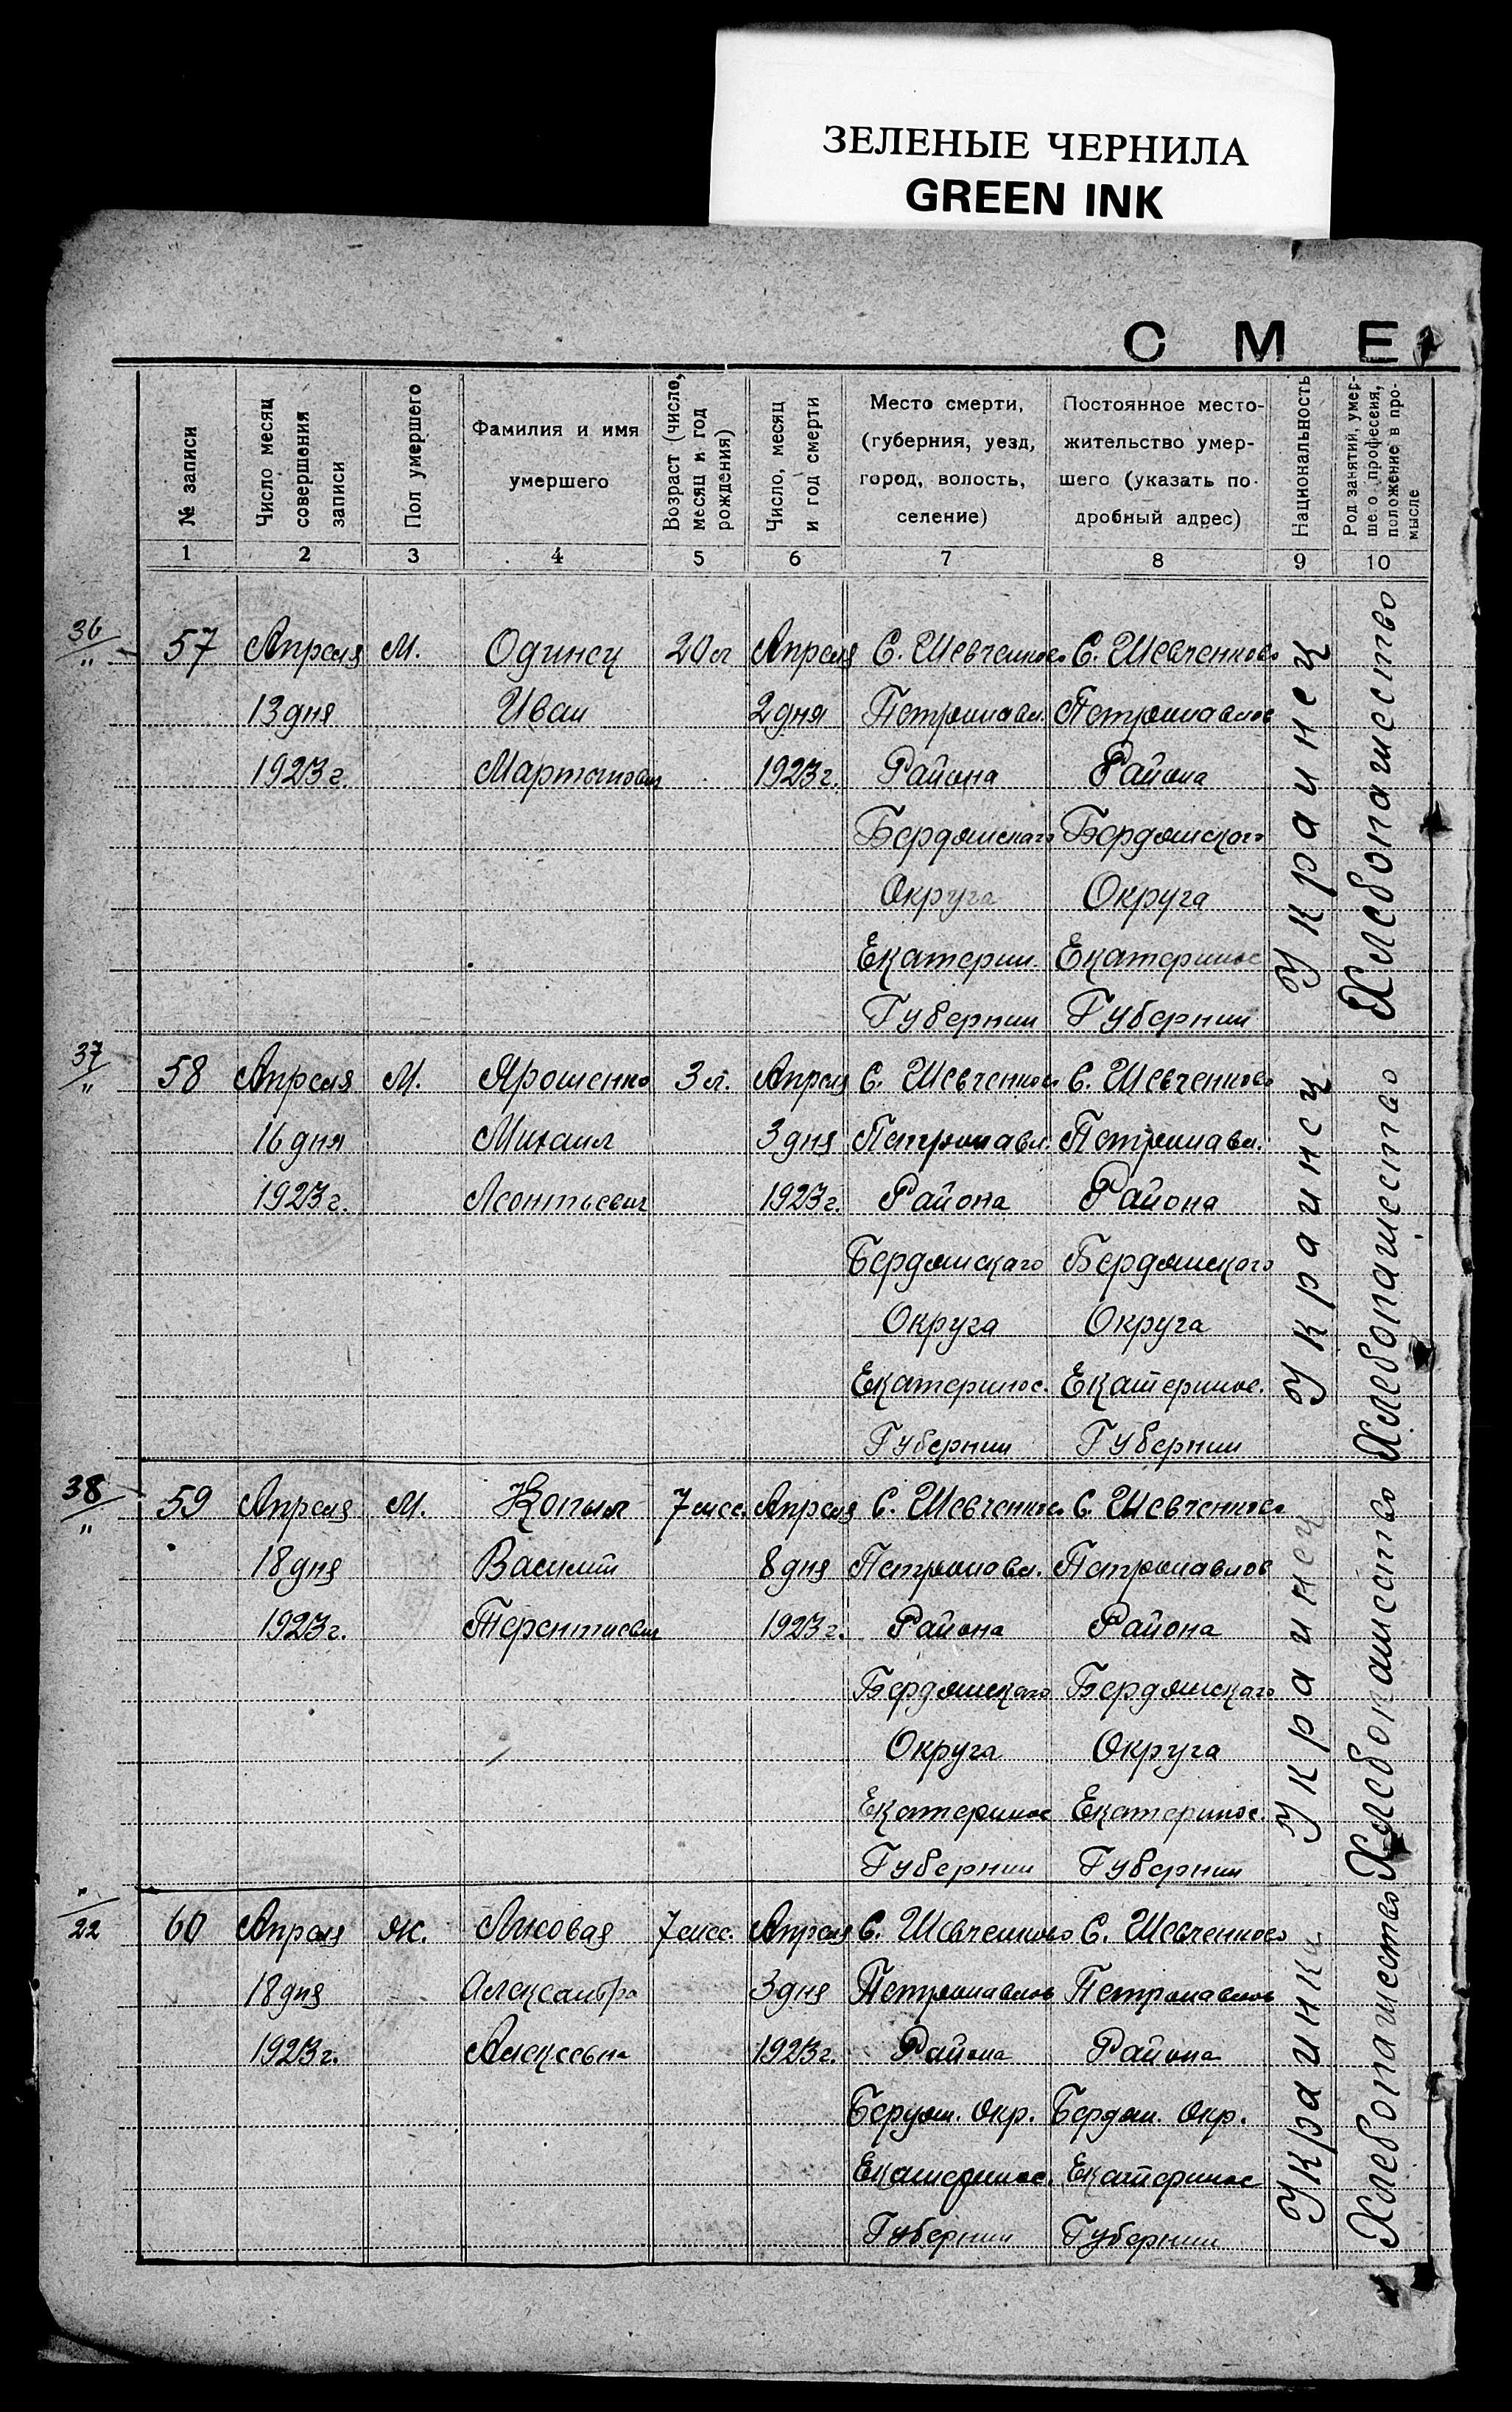 ЗЕЛЕНЫЕ ЧЕРНИЛА
GREEN INK
СМЕ
№ записи
Число месяц совершения записи
Пол умершего
Фамилия и имя умершего
Возраст (число, месяц и год рождения)
Число, месяц и год смерти
Место смерти, (губерния, уезд, город, волость, селение)
Постоянное место-жительство умер-шего (указать по-дробный адрес)
Национальность
Род занятий умер-шего, професеия, положение в про-мысле
1 2 3 4 5 6 7 8 9 10
36 57 Апреля М. Одинец 20 л Апреля С. Шевченково С. Шевченково
" 13 дня Иван 2 дня Петропавл. Петропавлов
1923 г. Мартынович 1923 г. Района Района
Бердянскаго Бердянского
Округа Округа
Екатерин. Екатеринос
Губернии Губернии
Украинец
Хлебопашество
37 58 Апреля М. Ярошенко 3 л. Апреля С. Шевченково С. Шевченково
" 16 дня Михаил 3 дня Петропавл. Петропавл.
1923 г. Леонтьевич 1923 г. Района Района
Бердянскаго Бердянского
Округа Округа
Екатеринос. Екатеринос.
Губернии Губернии
Украинец
Хлебопашество
38 59 Апреля М. Копыл 7 мес. Апреля С. Шевченково С. Шевченково
" 18 дня Василий 8 дня Петропавл. Петропавлов
1923 г. Терентиевич 1923 г. Района Района
Бердянскаго Бердянскаго
Округа Округа
Екатеринос Екатеринос.
Губернии Губернии
Украинец
Хлебопашество
" 22 60 Апреля Ж. Лиховая 7 мес. Апреля С. Шевченково С. Шевченково
18 дня Александра 3 дня Петропавлов Петропавлов
1923 г. Алексеевна 1923 г. Района Района
Бердян. Окр. Бердян. Окр.
Екатеринос. Екатеринос
Губернии Губернии
Украинка
Хлебопашество